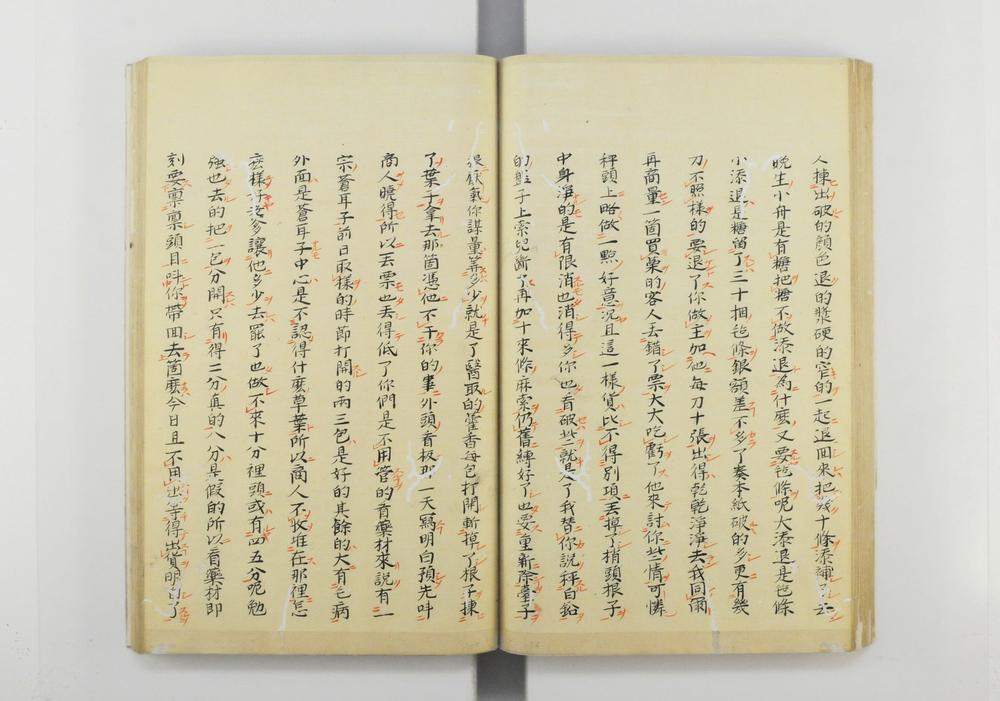 人揀出破的顏色退的漿硬的窄的一起退回來把幾十條添補 去
晚生小舟是有糖把糖不做添退為什麼又要毡條呢大添退是毡條
小添退是糖留了三十捆毡條銀額差不多了奏本紙破的多更有幾
刀不照樣的要退了你做主加他每刀十張出得乾乾淨淨去我回爾
再商量一箇買藥的客人去錯了票大大吃虧了他來討你些情可憐
秤頭上略做一點好意況且這一樣貨比不得別項丟掉了梢頭根子
中身淨的是有限消也消得多你也看破些就是了我替你說秤白鉛
的盤子上索 斷了再加十來條麻索仍舊縛好了也要重新除臺子
狠厭氣你謀量等多少就是了醫取的藿香每包打開斬掉了根子揀
了葉子拿去那箇憑他不干你的事外頭看板那一天寫明白預先呌
商人曉得所以丟票也丟得低了你們是不用管的看藥材來說有一
宗蒼耳子前日取樣的時節打開的兩三包是好的其餘的大有乞病
外面是蒼耳子中心是不認得什麼草葉所以商人不收堆在那裡怎
麼樣好 爹讓他多少去罷了也做不來十分裡頭或有四五分呢勉
強也去的把一包分開只有得二分真的八分是假的所以看藥材即
刻要稟稟頭目呌你帶回去箇麼今日且不用出等得出貨明白了